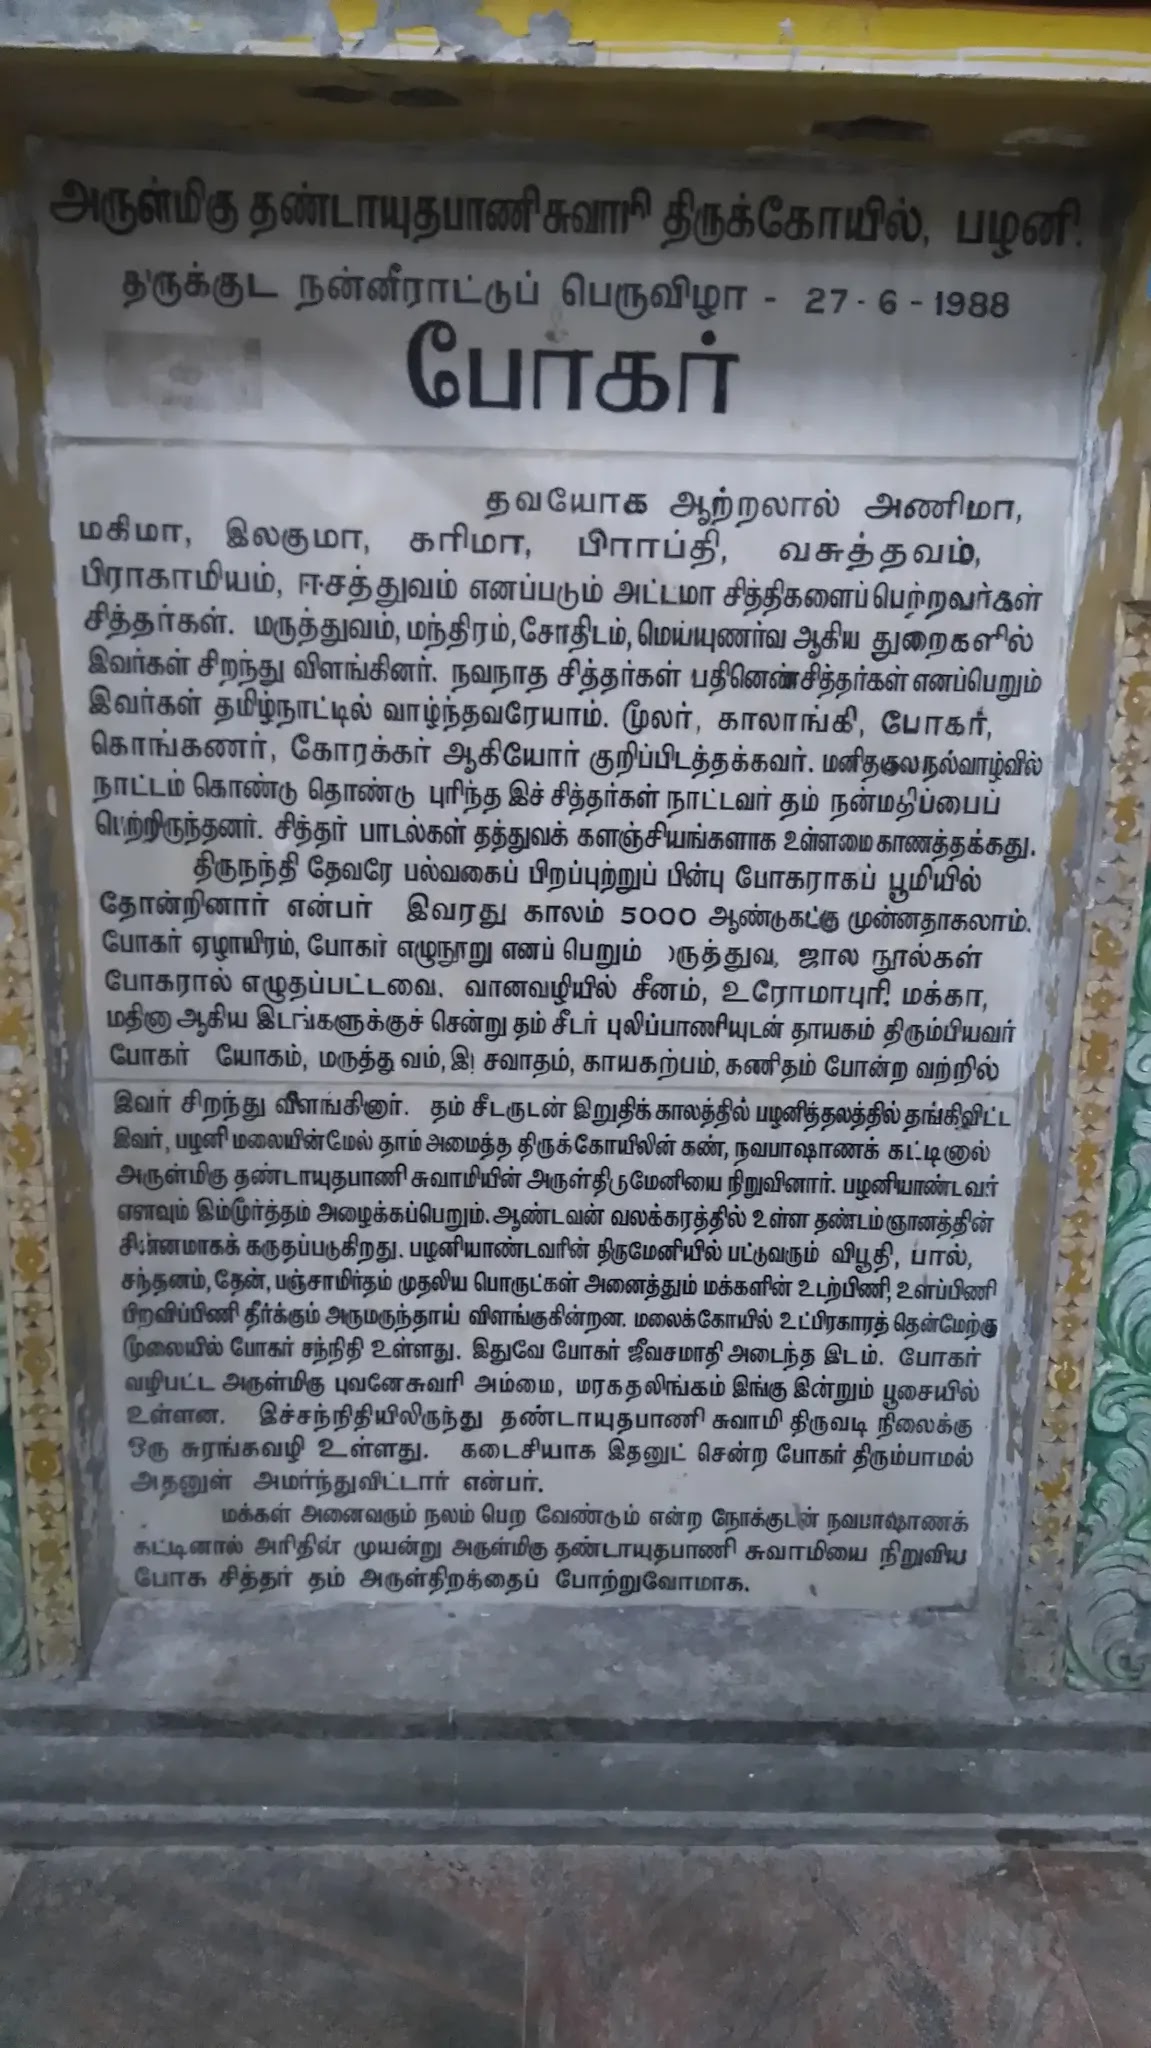 அருள்மிகு தண்டாயுதபாணி சுவாமி திருக்கோயில், பழனி.
திருக்குட நன்னீராட்டுப் பெருவிழா - 27-6-1988
போகர்
தவயோக ஆற்றலால் அணிமா,
மகிமா, இலகுமா, கரிமா, பிராப்தி, வசுத்தவம்,
பிராகாமியம், ஈசத்துவம் எனப்படும் அட்டமா சித்திகளைப் பெற்றவர்கள்
சித்தர்கள். மருத்துவம், மந்திரம், சோதிடம், மெய்யுணர்வு ஆகிய துறைகளில்
இவர்கள் சிறந்து விளங்கினர். நவநாத சித்தர்கள் பதினெண்சித்தர்கள் எனப்பெறும்
இவர்கள் தமிழ்நாட்டில் வாழ்ந்தவரேயாம். மூலர், காலாங்கி, போகர்,
கொங்கணர், கோரக்கர் ஆகியோர் குறிப்பிடத்தக்கவர். மனிதகுல நல்வாழ்வில்
நாட்டம் கொண்டு தொண்டு புரிந்த இச் சித்தர்கள் நாட்டவர் தம் நன்மதிப்பைப்
பெற்றிருந்தனர். சித்தர் பாடல்கள் தத்துவக் களஞ்சியங்களாக உள்ளமை காணத்தக்கது.
திருநந்தி தேவரே பல்வகைப் பிறப்புற்றுப் பின்பு போகராகப் பூமியில்
தோன்றினார் என்பர் இவரது காலம் 5000 ஆண்டுகட்கு முன்னதாகலாம்.
போகர் ஏழாயிரம், போகர் எழுநூறு எனப் பெறும் மருத்துவ, ஜால நூல்கள்
போகரால் எழுதப்பட்டவை. வானவழியில் சீனம், உரோமாபுரி, மக்கா,
மதினா ஆகிய இடங்களுக்குச் சென்று தம் சீடர் புலிப்பாணியுடன் தாயகம் திரும்பியவர்
போகர் யோகம், மருத்துவம், இரசவாதம், காயகற்பம், கணிதம் போன்ற வற்றில்
இவர் சிறந்து விளங்கினார். தம் சீடருடன் இறுதிக் காலத்தில் பழனித்தலத்தில் தங்கிவிட்ட
இவர், பழனி மலையின்மேல் தாம் அமைத்த திருக்கோயிலின் கண், நவபாஷாணக் கட்டினால்
அருள்மிகு தண்டாயுதபாணி சுவாமியின் அருள்திருமேனியை நிறுவினார். பழனியாண்டவர்
எனவும் இம்மூர்த்தம் அழைக்கப்பெறும். ஆண்டவன் வலக்கரத்தில் உள்ள தண்டம் ஞானத்தின்
சின்னமாகக் கருதப்படுகிறது. பழனியாண்டவரின் திருமேனியில் பட்டுவரும் விபூதி, பால்,
சந்தனம், தேன், பஞ்சாமிர்தம் முதலிய பொருட்கள் அனைத்தும் மக்களின் உடற்பிணி, உளப்பிணி
பிறவிப்பிணி தீர்க்கும் அருமருந்தாய் விளங்குகின்றன. மலைக்கோயில் உட்பிரகாரத் தென்மேற்கு
மூலையில் போகர் சந்நிதி உள்ளது. இதுவே போகர் ஜீவசமாதி அடைந்த இடம். போகர்
வழிபட்ட அருள்மிகு புவனேசுவரி அம்மை, மரகதலிங்கம் இங்கு இன்றும் பூசையில்
உள்ளன. இச்சந்நிதியிலிருந்து தண்டாயுதபாணி சுவாமி திருவடி நிலைக்கு
ஒரு சுரங்கவழி உள்ளது. கடைசியாக இதனுட் சென்ற போகர் திரும்பாமல்
அதனுள் அமர்ந்துவிட்டார் என்பர்.
மக்கள் அனைவரும் நலம் பெற வேண்டும் என்ற நோக்குடன் நவபாஷாணக்
கட்டினால் அரிதின் முயன்று அருள்மிகு தண்டாயுதபாணி சுவாமியை நிறுவிய
போக சித்தர் தம் அருள்திறத்தைப் போற்றுவோமாக.